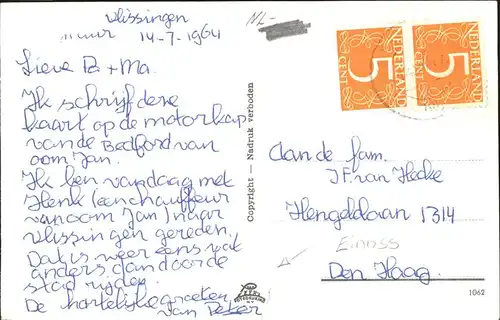 Vlissingen
14-7-1964
Lieve Pa + Ma.
Ik schrijf deze
kaart op de motorkap
van de Bedford van
oom Jan.
Ik ben vandaag met
Henk (een chauffeur
van oom Jan) naar
Vlissingen gereden.
Dat is weer eens wat
anders dan door de
stad rijden.
De hartelijke groeten
van Peter
NL-
Copyright - Nadruk verboden
NEDERLAND
5
CENT
NEDERLAND
5
CENT
Aan de fam.
J.F. van Hecke
Hengelolaan 1314
Den Haag.
1062